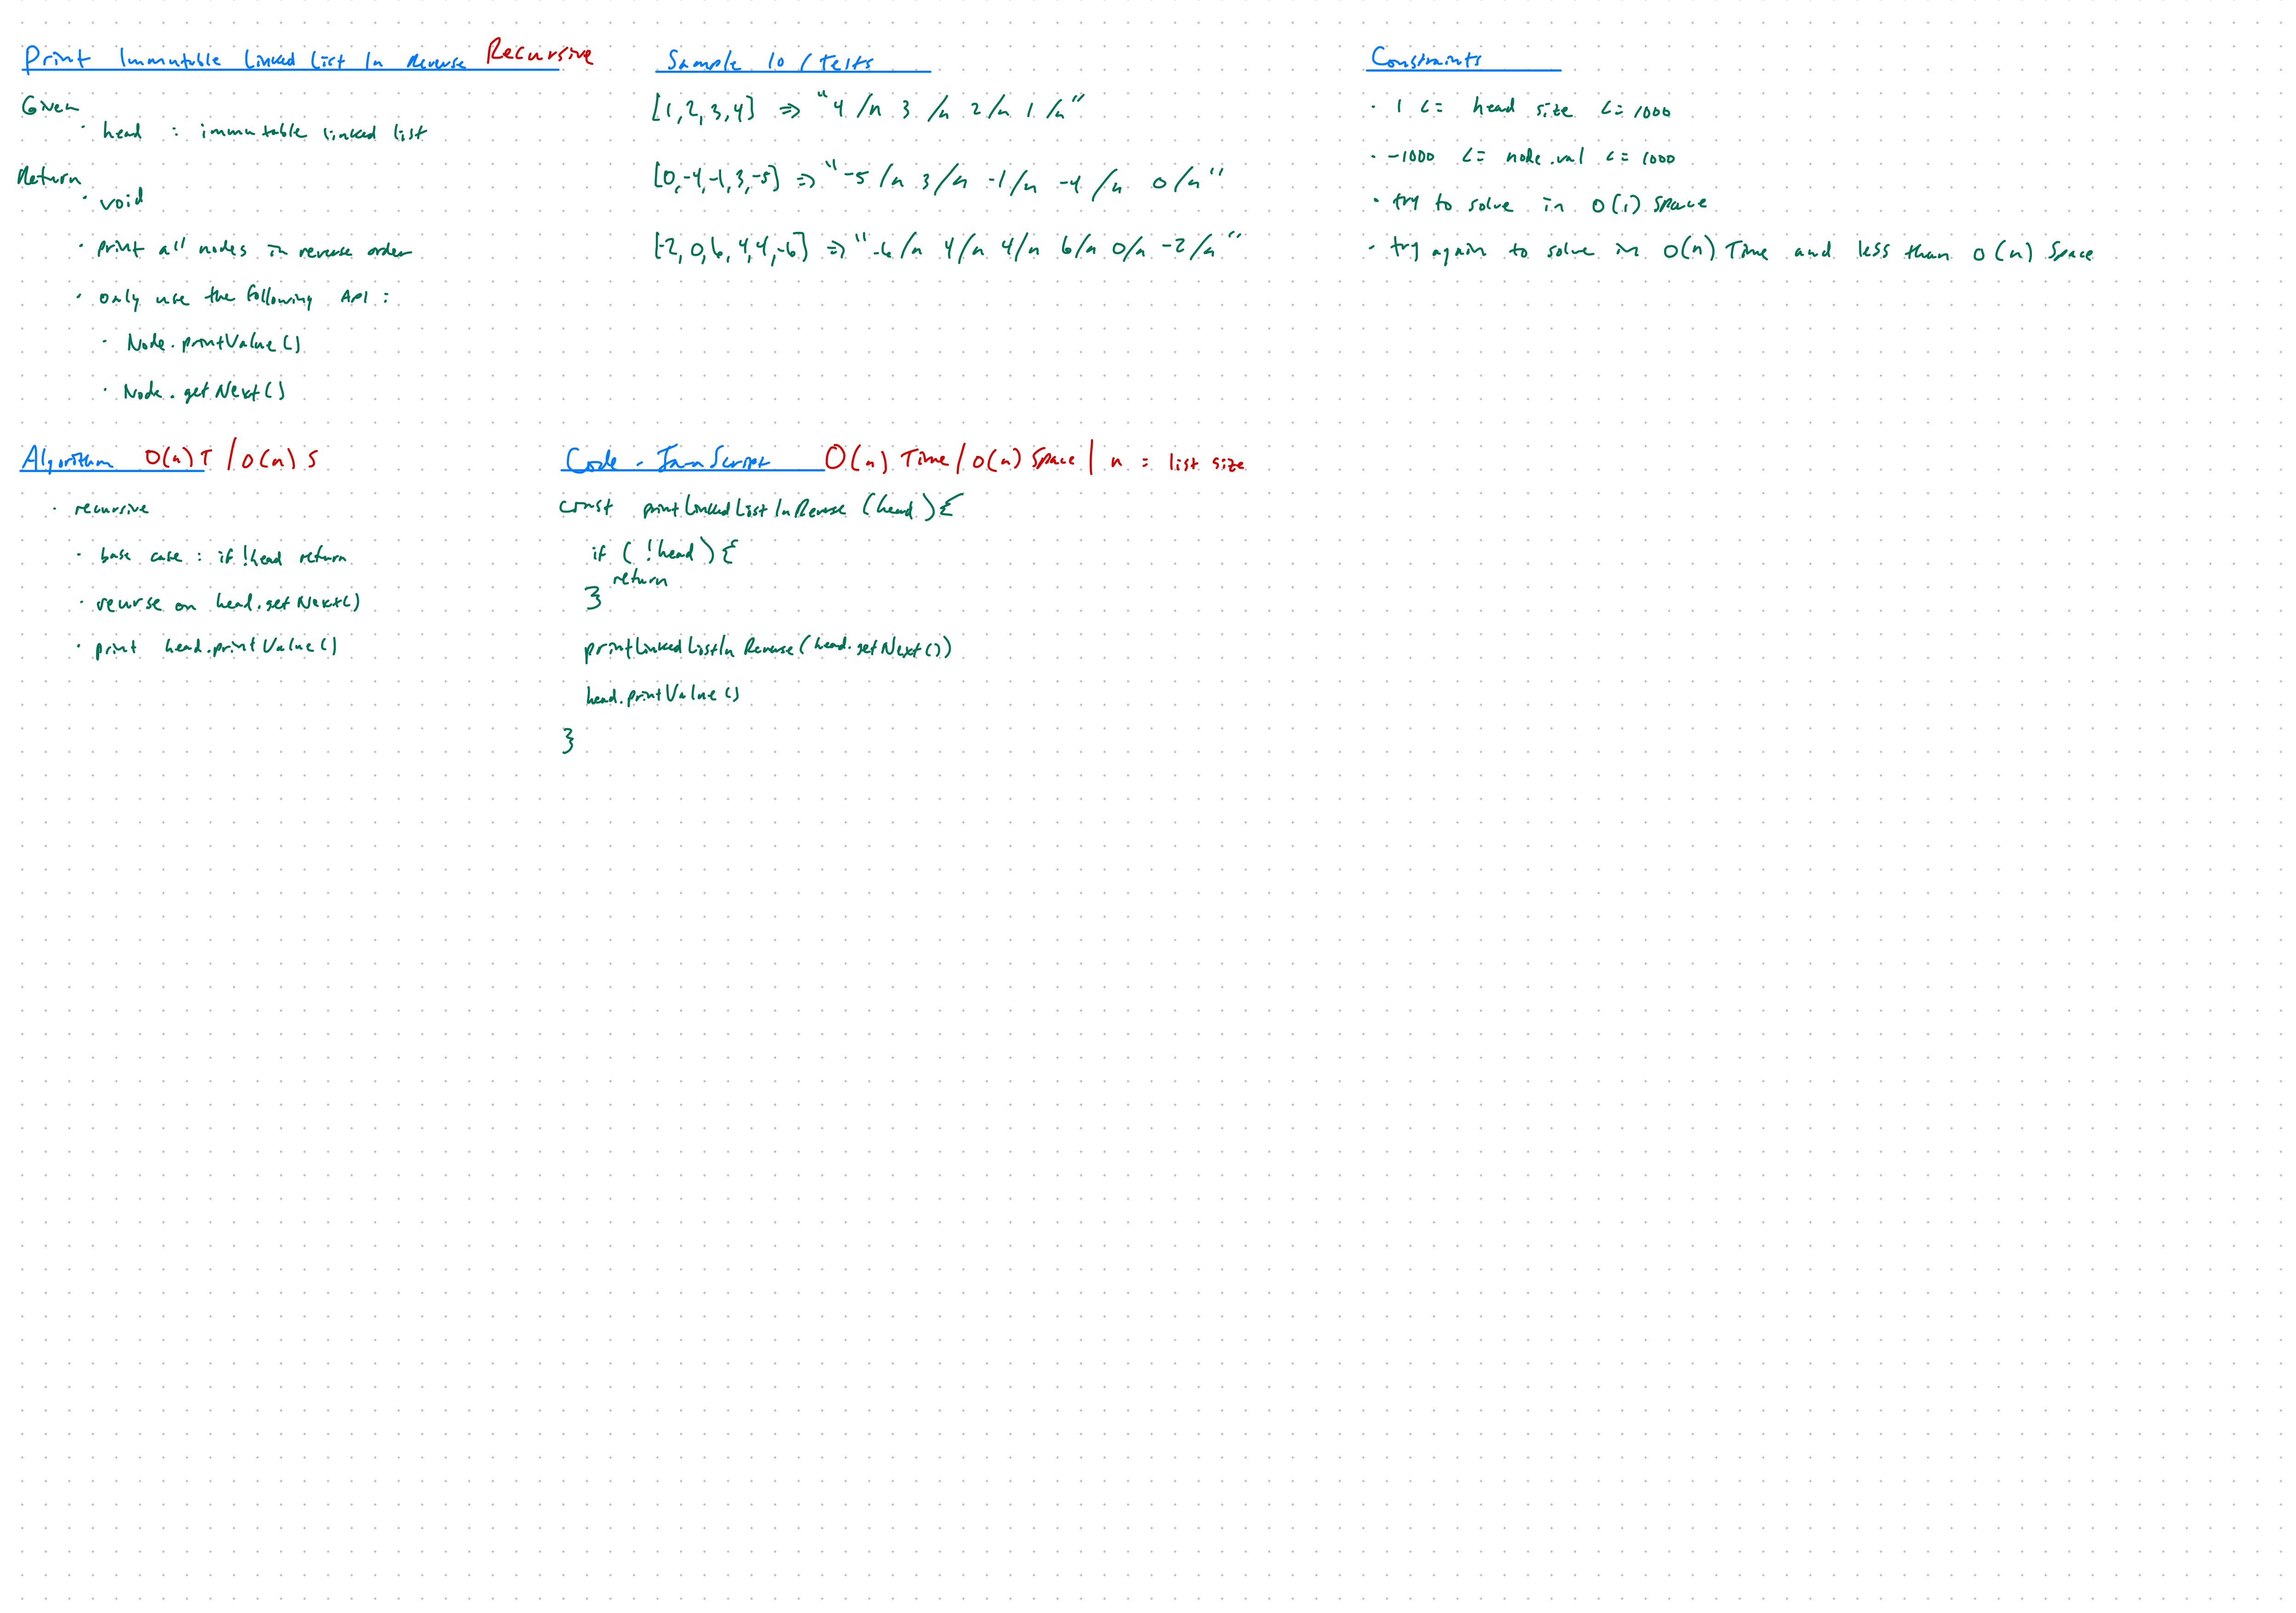 Print Immutable Linked List In Reverse Recursive
Given
· head : immutable linked list
Return
· void
· print all nodes in reverse order
· only use the following API :
· Node.printValue()
· Node.getNext()
Sample IO / Tests
[1,2,3,4] => "4 /n 3 /n 2 /n 1 /n"
[0,-4,-1,3,-5] => "-5 /n 3 /n -1 /n -4 /n 0 /n"
[-2,0,6,4,4,-6] => "-6 /n 4 /n 4 /n 6 /n 0 /n -2 /n"
Constraints
· 1 <= head size <= 1000
· -1000 <= node.val <= 1000
· try to solve in O(1) space
· try again to solve in O(n) Time and less than O(n) Space
Algorithm O(n) T / O(n) S
· recursive
· base case : if !head return
· recurse on head.getNext()
· print head.printValue()
Code - JavaScript O(n) Time / O(n) Space | n = list size
const printLinkedListInReverse (head) {
if ( !head ) {
return
}
printLinkedListInReverse(head.getNext())
head.printValue()
}